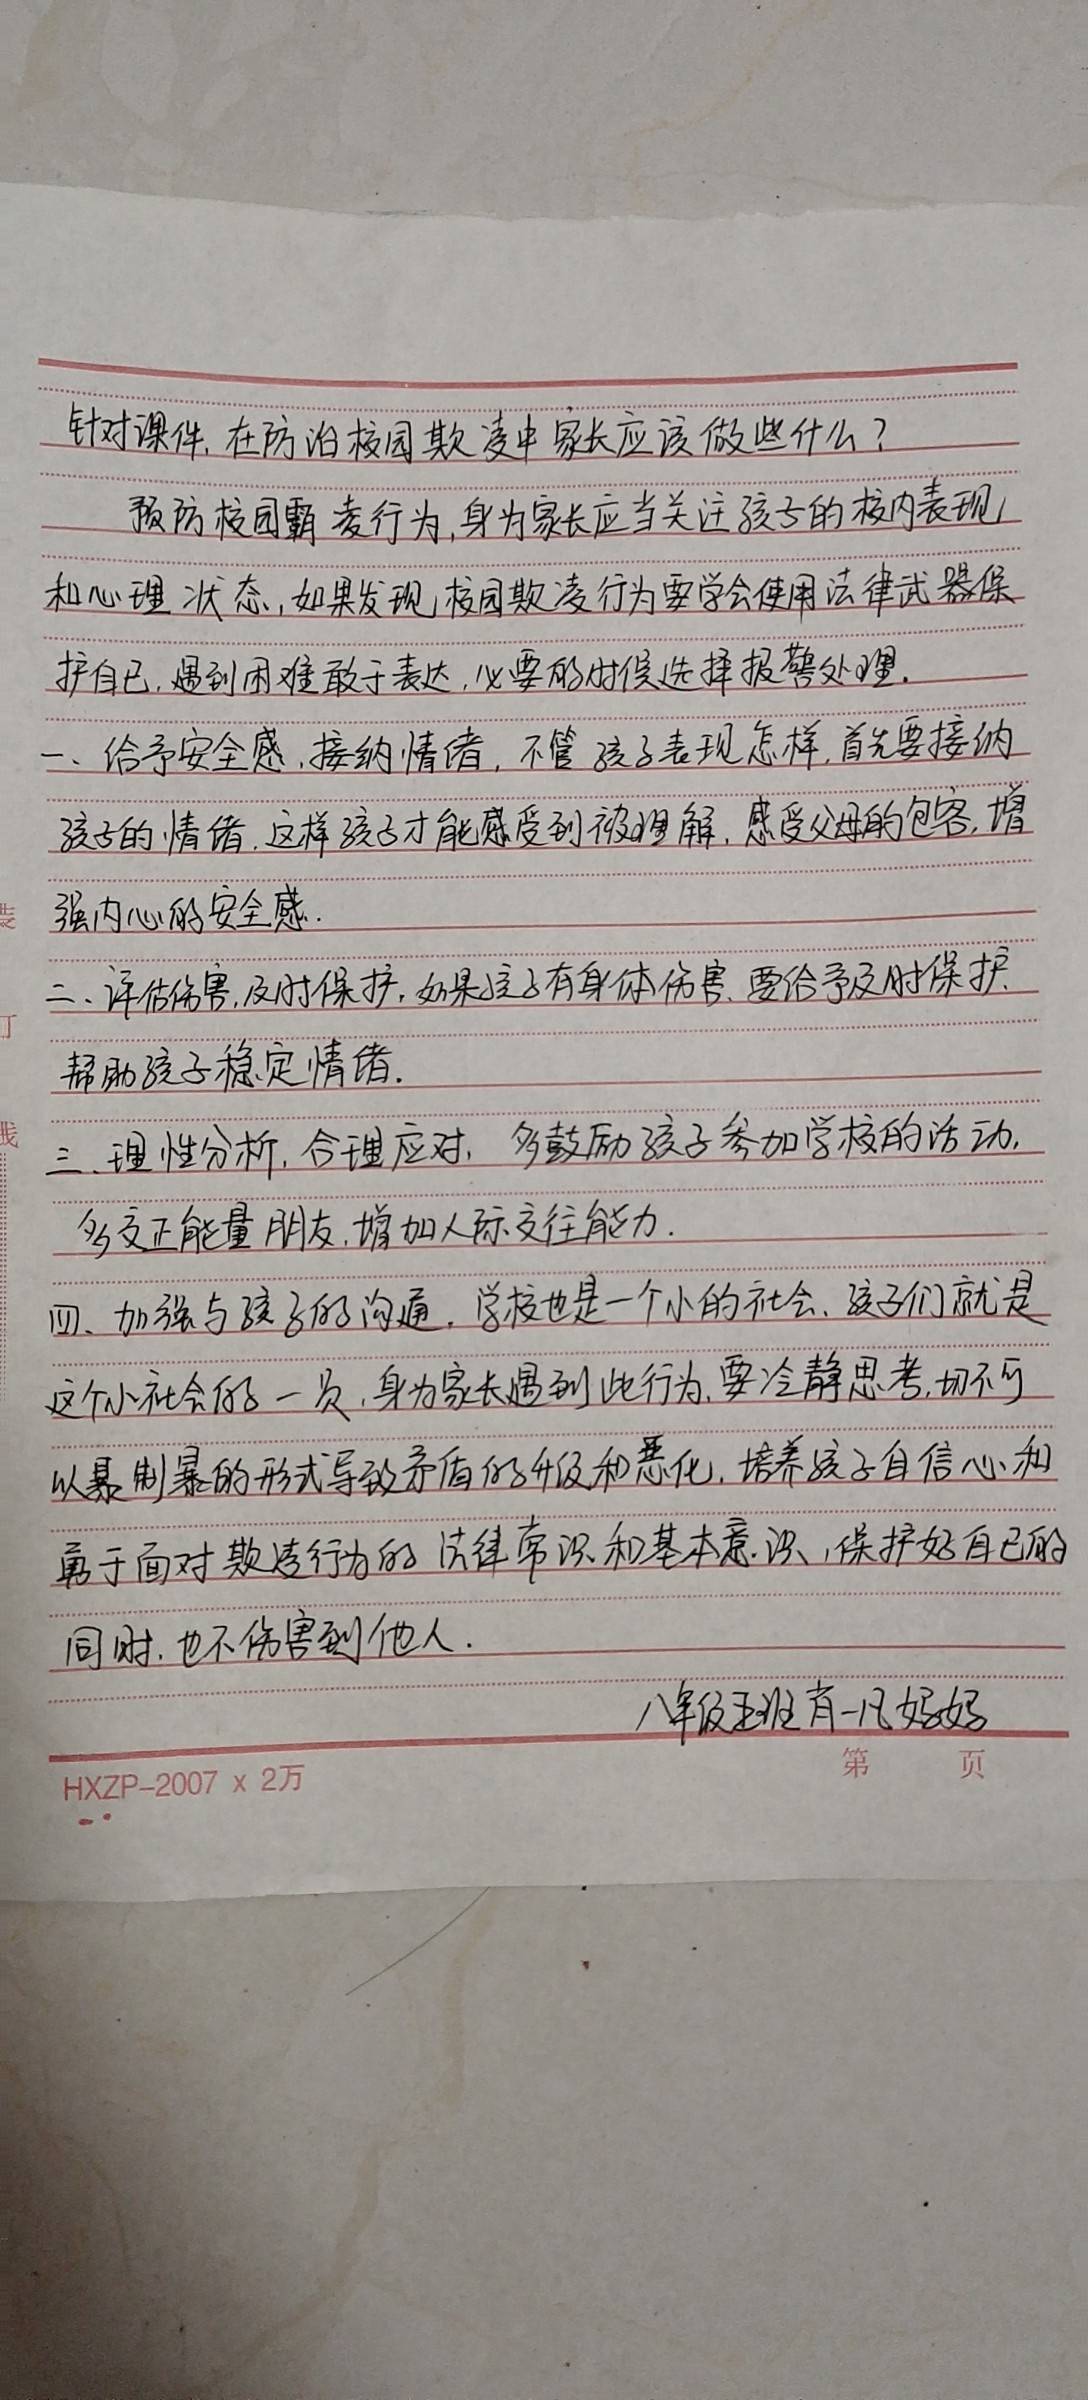 针对课件,在防治校园欺凌中家长应该做些什么?
预防校园霸凌行为,身为家长应当关注孩子的校内表现
和心理状态,如果发现校园欺凌行为要学会使用法律武器保
护自已,遇到困难敢于表达,必要的时候选择报警处理.
一、给予安全感,接纳情绪,不管孩子表现怎样,首先要接纳
孩子的情绪,这样孩子才能感受到被理解,感受父母的包容,增
强内心的安全感.
二、评估伤害,及时保护,如果孩子有身体伤害、要给予及时保护.
帮助孩子稳定情绪.
三、理性分析,合理应对,多鼓励孩子参加学校的活动,
多交正能量朋友,增加人际交往能力.
四、加强与孩子的沟通,学校也是一个小的社会、孩子们就是
这个小社会的一员,身为家长遇到此行为,要冷静思考,切不可
以暴制暴的形式导致矛盾的升级和恶化,培养孩子自信心和
勇于面对欺凌行为的法律常识和基本意识,保护好自已的
同时,也不伤害到他人.
八年级五班肖一凡妈妈
第 页
HXZP-2007 x 2万
装
订
线